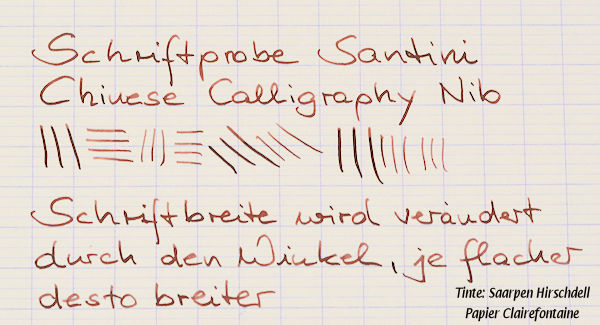 Schriftprobe Santini
Chinese Calligraphy Nib
Schriftbreite wird verändert
durch den Winkel, je flacher
desto breiter
Tinte: Saarpen Hirschdell
Papier Clairefontaine